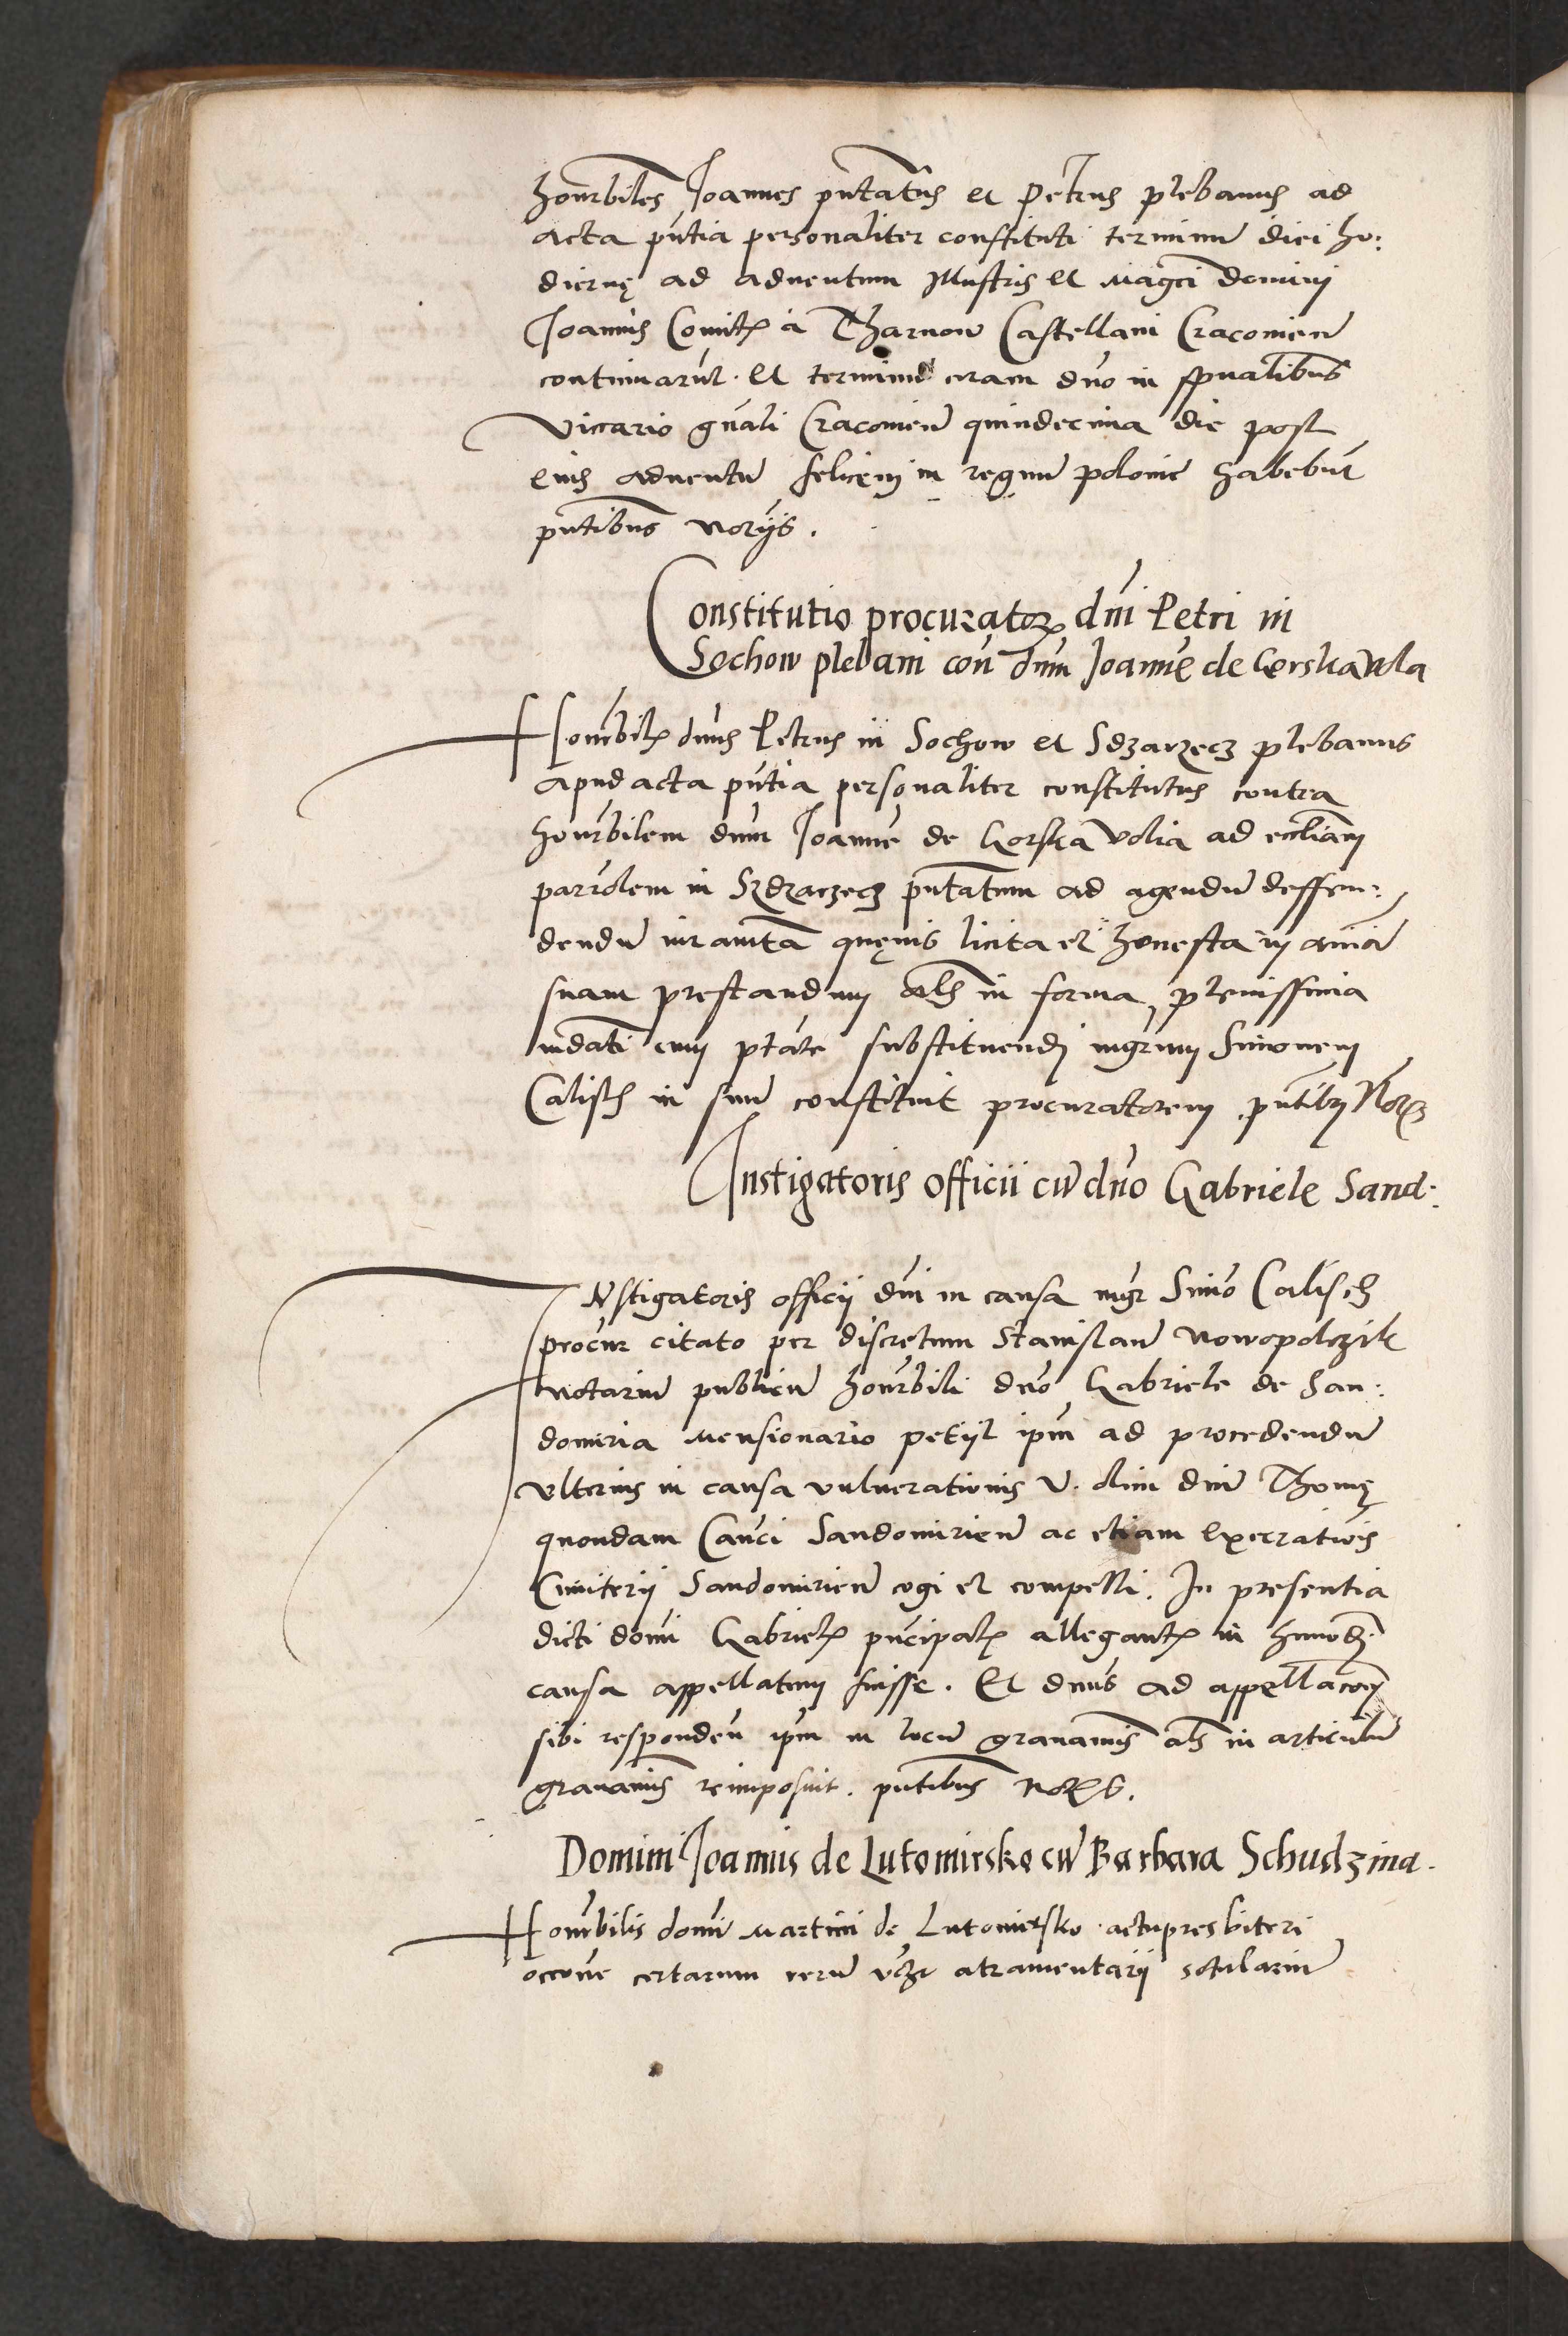 honorbiles Joannes pntatus et Petrus plebanus ad
acta pntia personaliter constituti terminum diei ho:
diernę ad aduentum Illustris et Magci domini
Joannis Comitis a Tharnow Castellani Cracouien
continuarunt. Et terminū coram dno in spualibus
Viccario gnali Cracouien quindecima die post
eius aduentū felicem in regnum polonie habebūt
pntibus notrijs.
Constitutio procurator dni Petri in
Sochow plebani con dnm Joannē de Gorska Vola
Honorbilis dnus Petrus in Sochow et Sdzarzecz plebanus
apud acta pntia personaliter constitutus contra
honorbilem dnm Joannē de Gorska Volia ad eccliam
parrolem in Szdzarzecz pntatum ad agendū deffen:
dendū iuramta quęuis licita et honesta in aniā
suam prestandum als in forma plenissima
mdati cum ptate substituendi mgrum Simonem
Calisch in suū constituit procuratorem pntibus Notrs
Instigatoris officii cū dno Gabriele Sand:
INstigatoris officij dni in causa mgr Simō Calisch
procur citato per discretum Stanislaū Nowopolczik
Notariū publicū honorbili dno Gabriele de San:
domiria Mensionario petijt ipm ad procedendū
vlterius in causa vulnerationis V. olim dni Thomę
quondam Canci Sandomirien ac etiam Execrationis
Cimiterij Sandomirien cogi et compelli. In presentia
dicti domi Gabrielis principalis allegantis in hmodi
causa appellatum fuisse. Et dnus ad appellacoem
sibi responden ipm in locū grauamis als in articulū
grauamis reimposuit. pntibus Notrs.
Domini Joannis de Lutomirsko cū Barbara Schudzina.
Honorbilis domi Martini de Lutomirsko actu presbiteri
occone certarum rerū vcz atramentarij sotularium